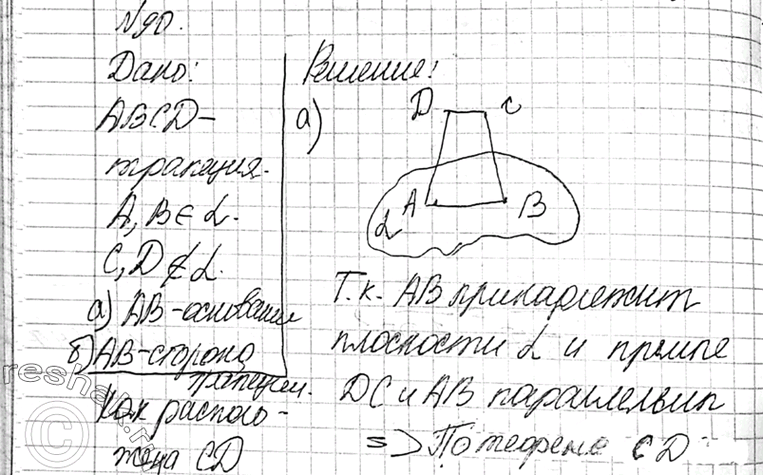 N90.
Дано:
ABCD-
трапеция.
A, B ∈ α.
C, D ∉ α.
а) AB-основание
б) AB-сторона
трапеции.
Как располо-
жена CD
Решение:
а)
D C
A B
α
Т.к. AB принадлежит
плоскости α и прямые
DC и AB параллельны
=> По теореме CD